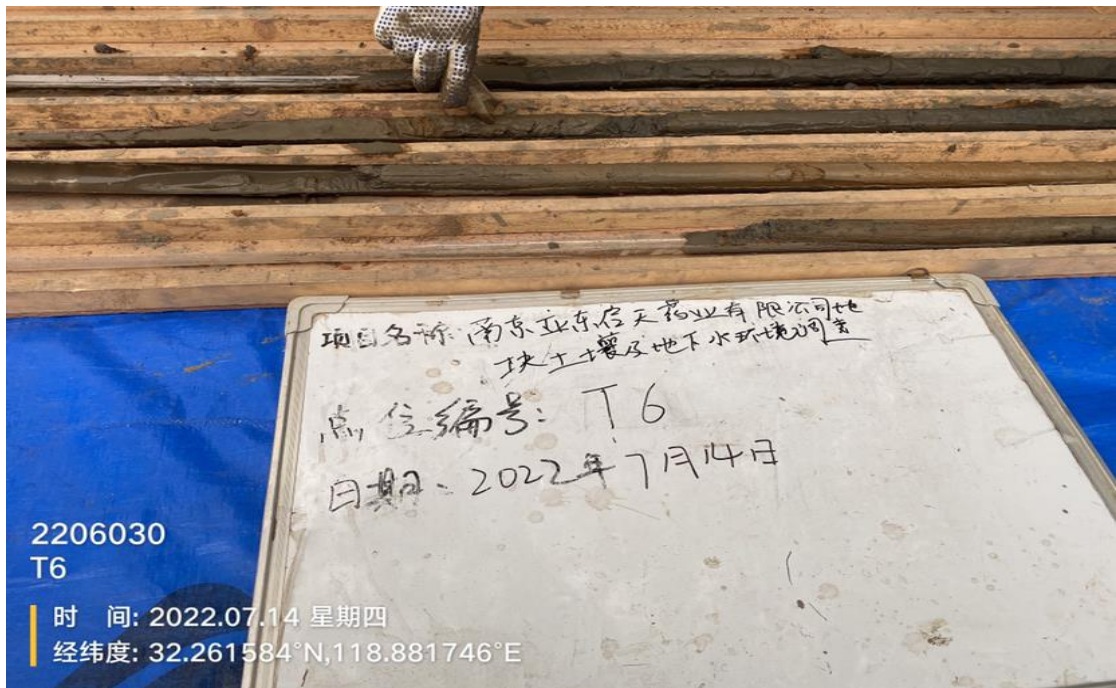 项目名称：南京亚东启天药业有限公司地
块土壤及地下水环境调查
点位编号：T6
日期：2022年7月14日
2206030
T6
时 间: 2022.07.14 星期四
经纬度: 32.261584°N,118.881746°E